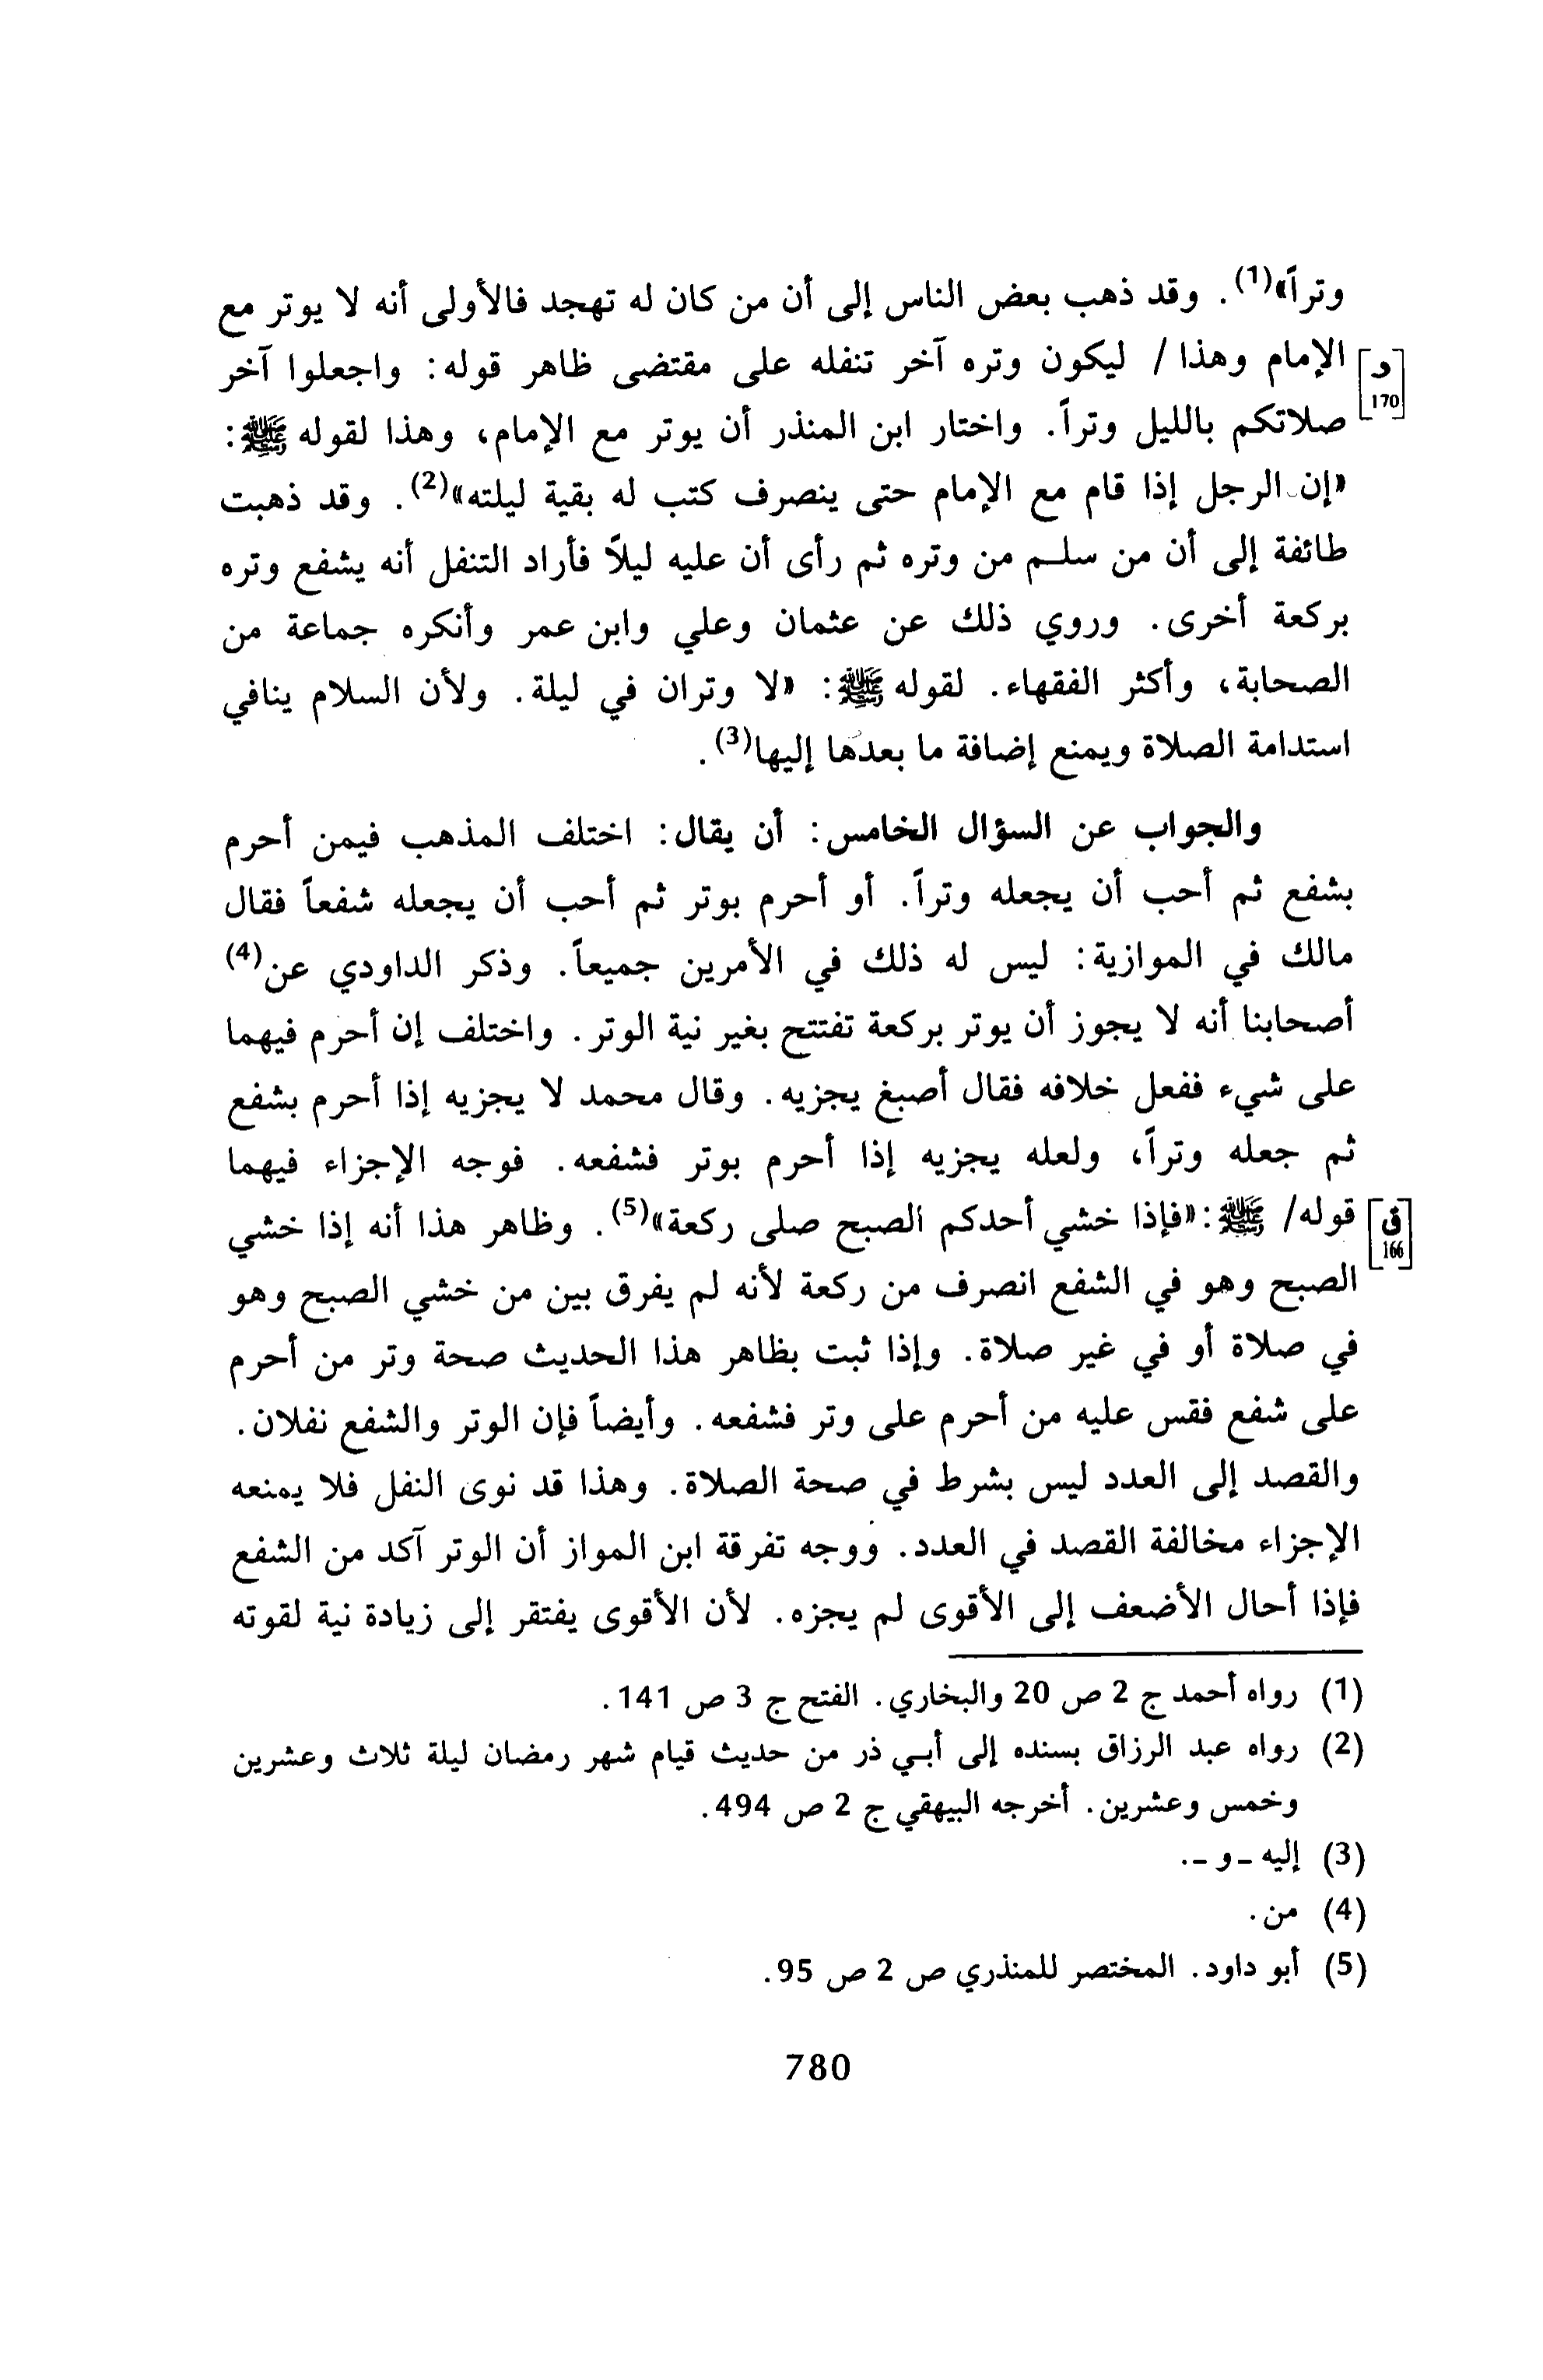 وتراً»(1). وقد ذهب بعض الناس إلى أن من كان له تهجد فالأولى أنه لا يوتر مع
[د 170] الإمام وهذا / ليكون وتره آخر تنفله على مقتضى ظاهر قوله: واجعلوا آخر
صلاتكم بالليل وتراً. واختار ابن المنذر أن يوتر مع الإمام، وهذا لقوله ﷺ:
«إن الرجل إذا قام مع الإمام حتى ينصرف كتب له بقية ليلته»(2). وقد ذهبت
طائفة إلى أن من سلم من وتره ثم رأى أن عليه ليلاً فأراد التنفل أنه يشفع وتره
بركعة أخرى. وروي ذلك عن عثمان وعلي وابن عمر وأنكره جماعة من
الصحابة، وأكثر الفقهاء. لقوله ﷺ: «لا وتران في ليلة. ولأن السلام ينافي
استدامة الصلاة ويمنع إضافة ما بعدها إليها(3).
والجواب عن السؤال الخامس: أن يقال: اختلف المذهب فيمن أحرم
بشفع ثم أحب أن يجعله وتراً. أو أحرم بوتر ثم أحب أن يجعله شفعاً فقال
مالك في الموازية: ليس له ذلك في الأمرين جميعاً. وذكر الداودي عن(4)
أصحابنا أنه لا يجوز أن يوتر بركعة تفتتح بغير نية الوتر. واختلف إن أحرم فيهما
على شيء ففعل خلافه فقال أصبغ يجزيه. وقال محمد لا يجزيه إذا أحرم بشفع
ثم جعله وتراً، ولعله يجزيه إذا أحرم بوتر فشفعه. فوجه الإجزاء فيهما
[ق 166] قوله/ ﷺ: «فإذا خشي أحدكم الصبح صلى ركعة»(5). وظاهر هذا أنه إذا خشي
الصبح وهو في الشفع انصرف من ركعة لأنه لم يفرق بين من خشي الصبح وهو
في صلاة أو في غير صلاة. وإذا ثبت بظاهر هذا الحديث صحة وتر من أحرم
على شفع فقس عليه من أحرم على وتر فشفعه. وأيضاً فإن الوتر والشفع نفلان.
والقصد إلى العدد ليس بشرط في صحة الصلاة. وهذا قد نوى النفل فلا يمنعه
الإجزاء مخالفة القصد في العدد. ووجه تفرقة ابن المواز أن الوتر آكد من الشفع
فإذا أحال الأضعف إلى الأقوى لم يجزه. لأن الأقوى يفتقر إلى زيادة نية لقوته
(1) رواه أحمد ج 2 ص 20 والبخاري. الفتح ج 3 ص 141.
(2) رواه عبد الرزاق بسنده إلى أبي ذر من حديث قيام شهر رمضان ليلة ثلاث وعشرين
وخمس وعشرين. أخرجه البيهقي ج 2 ص 494.
(3) إليه - و -.
(4) من.
(5) أبو داود. المختصر للمنذري ص 2 ص 95.
780